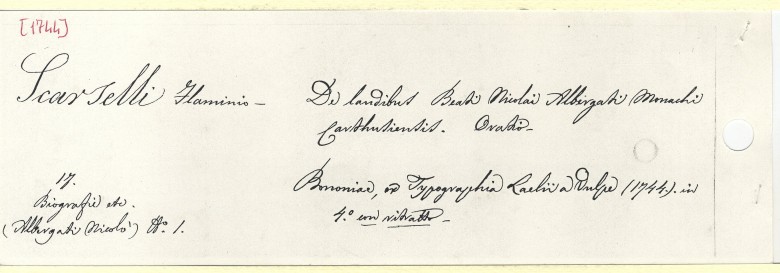 [1744]
Scarselli Flaminio —
De laudibus Beati Nicolai Albergati Monachi
Carthusiensis. Oratio —
Bononiae, ex Typographia Laelii a Vulpe (1744). in
4.º con ritratto —
17.
Biografie etc.
(Albergati Nicolò) N.º 1.